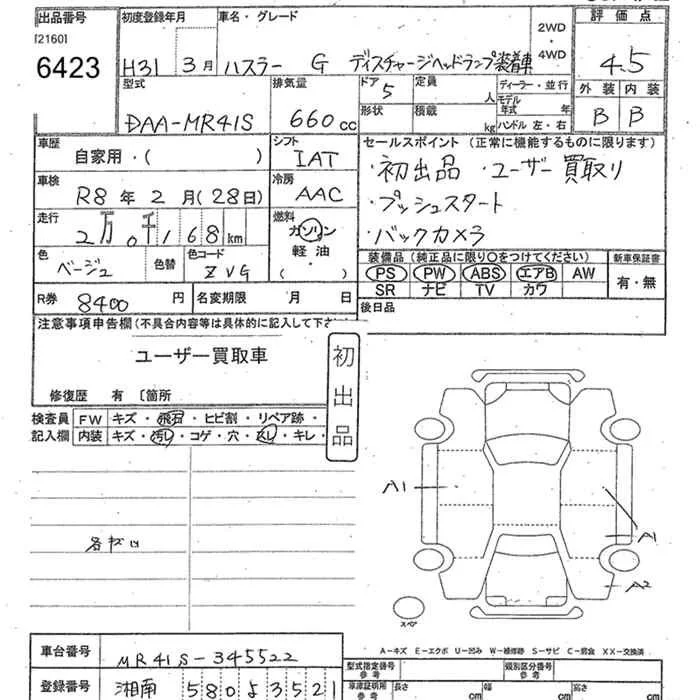 出品番号 初度登録年月 車名・グレード 2WD・4WD 評価点
[2160]
6423 H31 3月 ハスラー G ディスチャージヘッドランプ装着車 4.5
型式 排気量 ドア 定員 ディーラー・並行 外装 内装
DAA-MR41S 660cc 5 人 モデル年式 年 B B
形状 積載 kg ハンドル 左・右
車歴 シフト セールスポイント (正常に機能するものに限ります)
自家用・( ) IAT ・初出品 ・ユーザー買取り
車検 冷房 ・プッシュスタート
R8年2月(28日) AAC ・バックカメラ
走行 燃料
2万0千168km ガソリン 軽油・( )
装備品(純正品に限り○をつけてください) 新車保証書
色 色替 色コード PS PW ABS エアB AW 有・無
ベージュ ZVG SR ナビ TV カワ
R券 8400円 名変期限 月 日 後日品
注意事項申告欄(不具合内容等は具体的に記入して下さ
ユーザー買取車
初出品
修復歴 有 〔箇所
検査員 FW キズ・飛石・ヒビ割・リペア跡・
記入欄 内装 キズ・汚レ・コゲ・穴・スレ・キレ・
A1
各キズ凹 A1
A2
スペア
A-キズ E-エクボ U-凹み W-補修跡 S-サビ C-腐食 XX-交換済
車台番号 MR41S-345522 型式指定番号 参考 類別区分番号 参考
登録番号 湘南 580 よ 3521 車庫証明用 参考 長さ cm 幅 cm 高さ cm